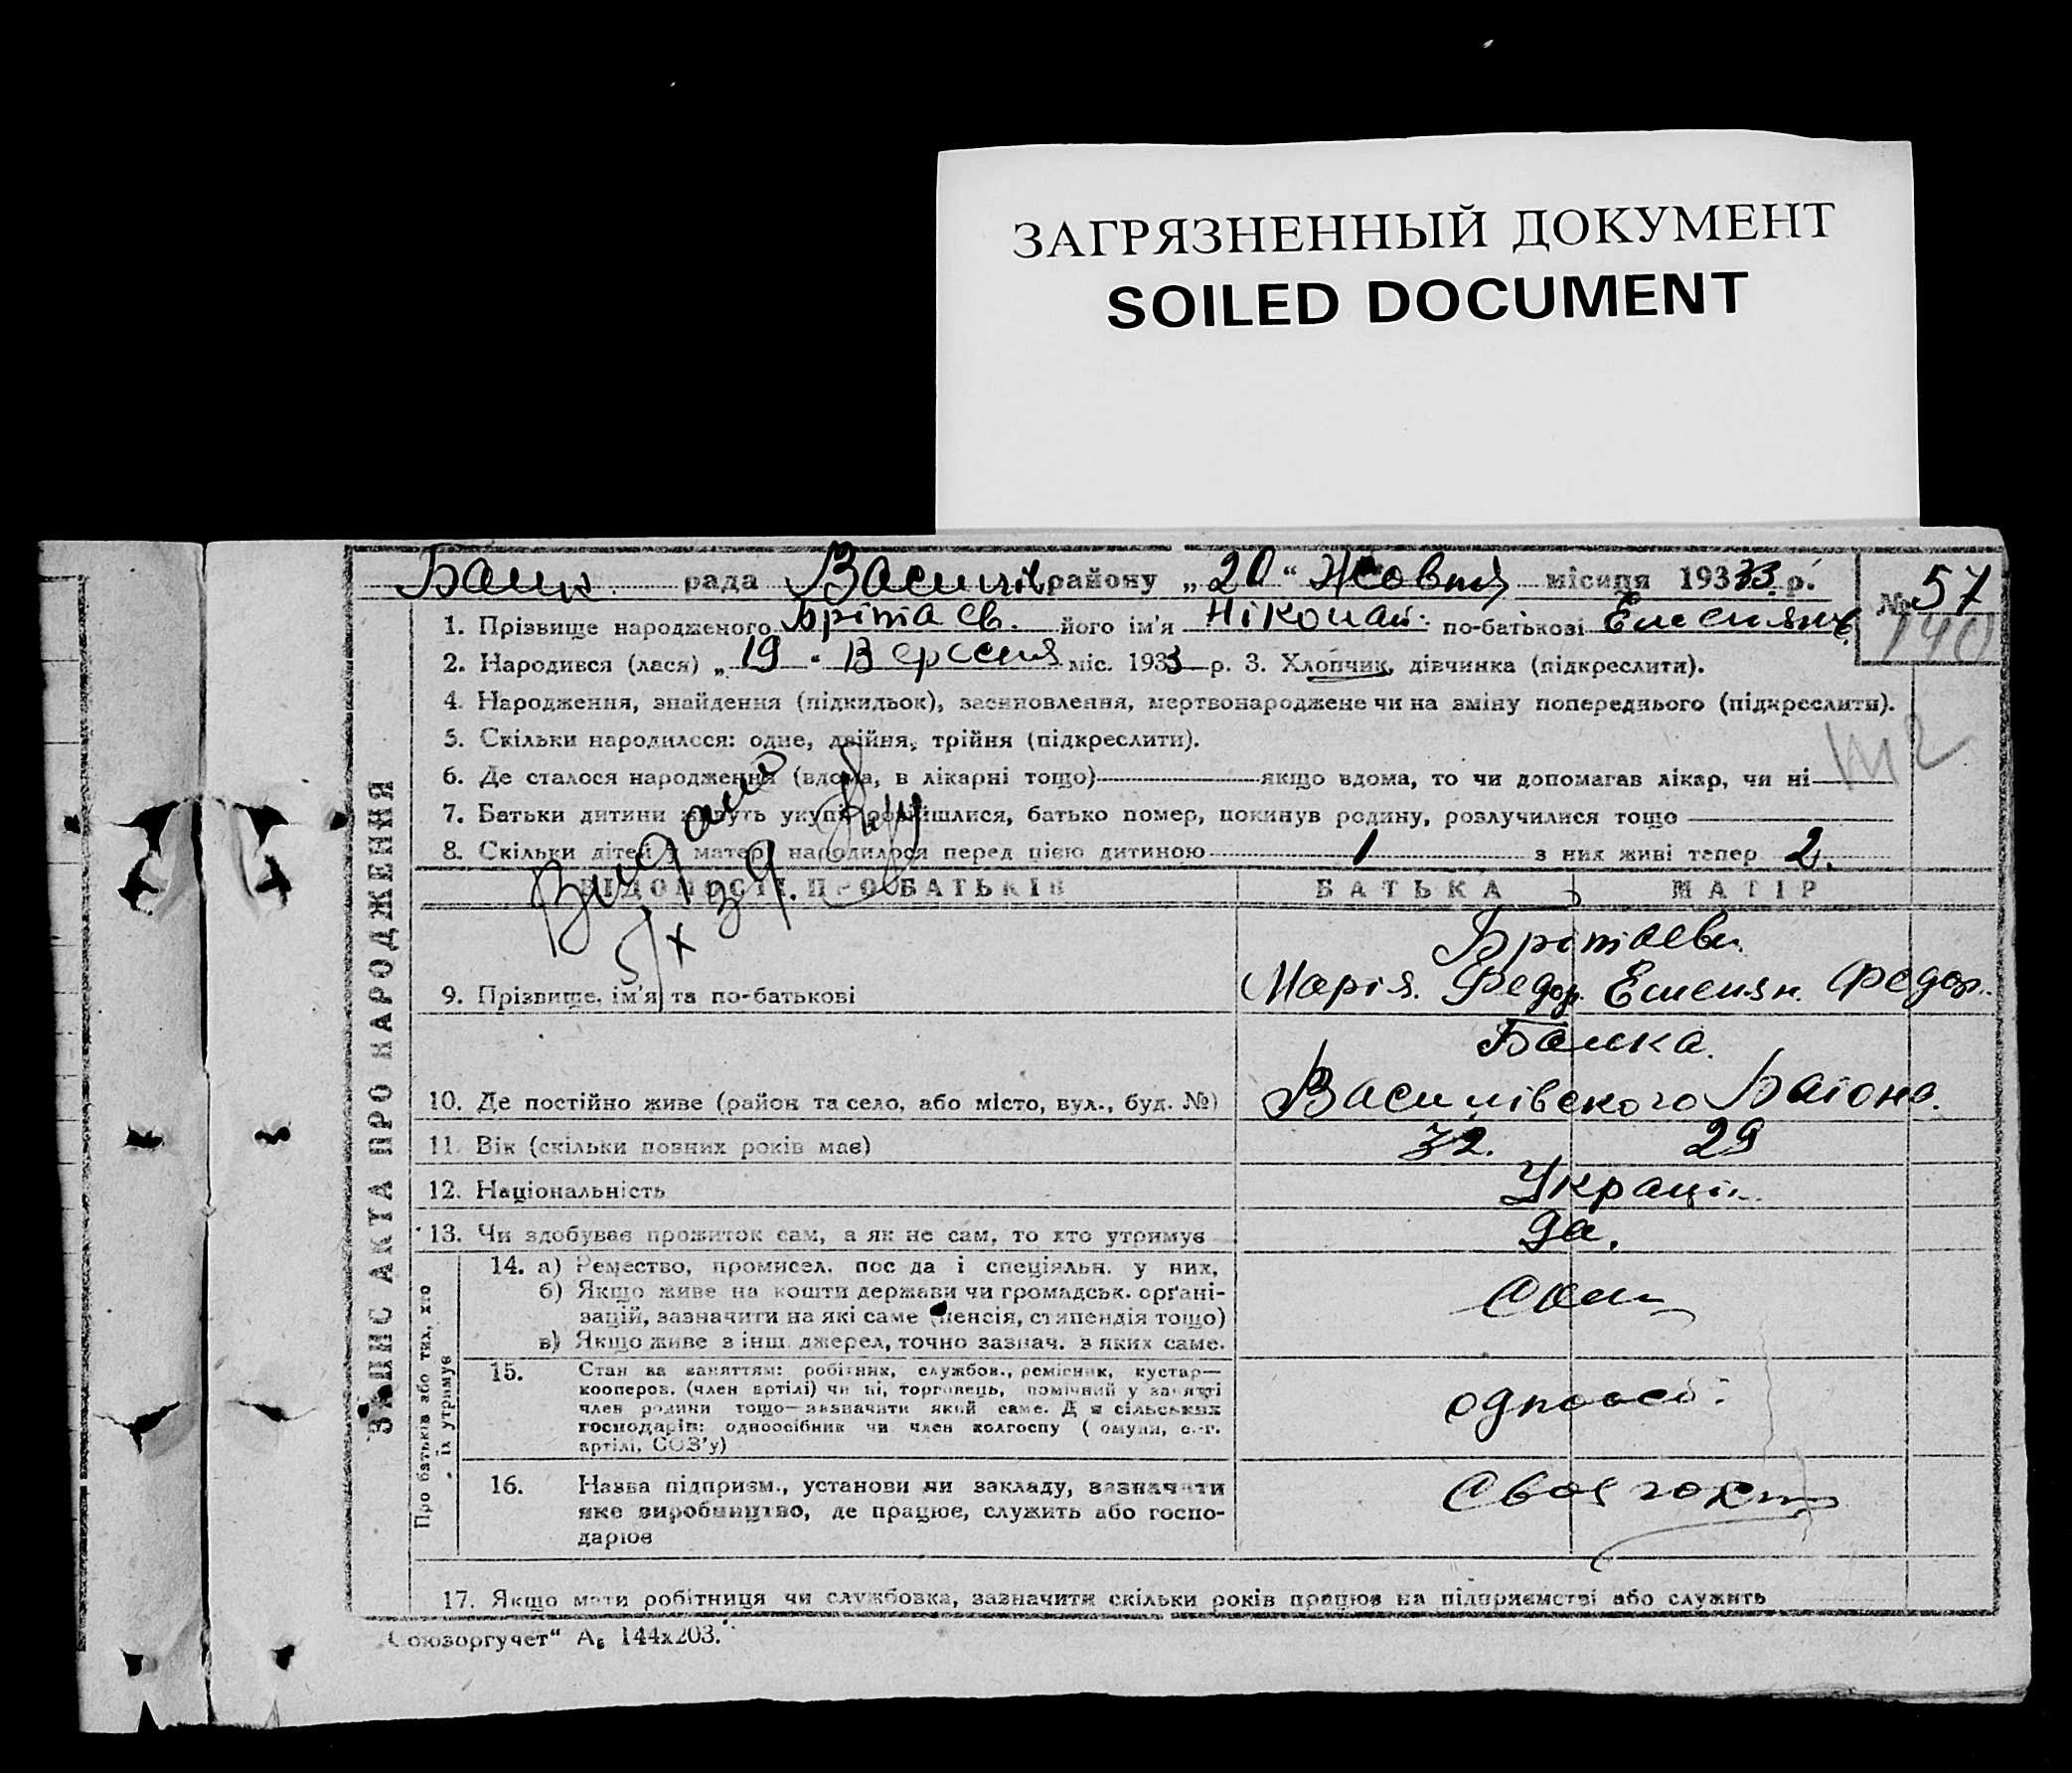 ЗАГРЯЗНЕННЫЙ ДОКУМЕНТ
SOILED DOCUMENT
Балк рада Василів району „20“ Жовтня місяця 1933 р.
№ 57
140
1. Прізвище народженого Брітаєв. його ім'я Ніколай по-батькові Емельянов.
2. Народився (лася) „19 " Вересня міс. 1933 р. 3. Хлопчик, дівчинка (підкреслити).
4. Народження, знайдення (підкидьок), засиновлення, мертвонароджене чи на зміну попереднього (підкреслити).
5. Скільки народилося: одне, двійня, трійня (підкреслити).
6. Де сталося народження (вдома, в лікарні тощо) якщо вдома, то чи допомагав лікар, чи ні
7. Батьки дитини живуть укупі, розійшлися, батько помер, покинув родину, розлучилися тощо
8. Скільки дітей у матері народилося перед цією дитиною 1 з них живі тепер 2.
Видано
5/X 39
ВІДОМОСТІ ПРО БАТЬКІВ БАТЬКА МАТІР
Брітаеви
9. Прізвище, ім'я та по-батькові Марія. Федор. Емельян. Федор.
Балка.
10. Де постійно живе (район та село, або місто, вул., буд. №) Василівского Баіона.
11. Вік (скільки повних років має) 32. 29
12. Національність Украці
13. Чи здобуває прожиток сам, а як не сам, то хто утримує да.
14. а) Ремество, промисел. пос да і спеціяльн. у них,
б) Якщо живе на кошти держави чи громадськ. орґані-
зацій, зазначити на які саме (пенсія, стипендія тощо)
в) Якщо живе з інш. джерел, точно зазнач. з яких саме.
15. Стан за заняттям: робітник, службов., ремісник, кустар—
кооперов. (член артілі) чи ні, торговець, помічний у занятті
член родини тощо—зазначити який саме. Для сільських
господарів: одноосібник чи член колгоспу ( омуни, с.-г.
артілі, СОЗ'у) одноосі
16. Назва підприєм., установи чи закладу, зазначити
яке виробництво, де працює, служить або госпо-
дарює
17. Якщо мати робітниця чи службовка, зазначити скільки років працює на підприємстві або служить
ЗАПИС АКТА ПРО НАРОДЖЕННЯ
Про батьків або тих, хто
їх утримує
„Союзоргучет“ А₅ 144х203.